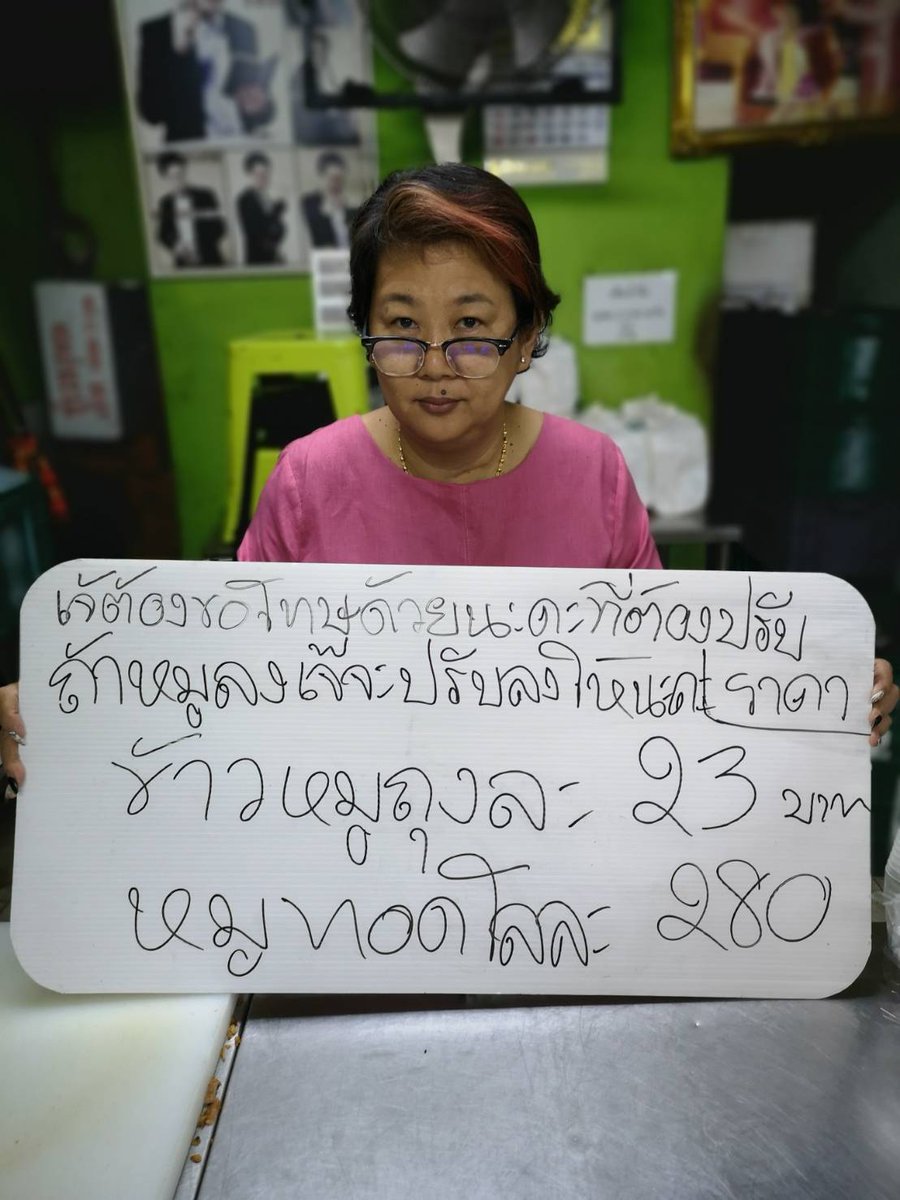 เจ้ต้องขอโทษด้วยนะคะที่ต้องปรับ
ถ้าหมูลงเจ๊จะปรับลงให้นะคะ ราคา
ข้าวหมูถุงละ 23 บาท
หมูทอดโลละ 280